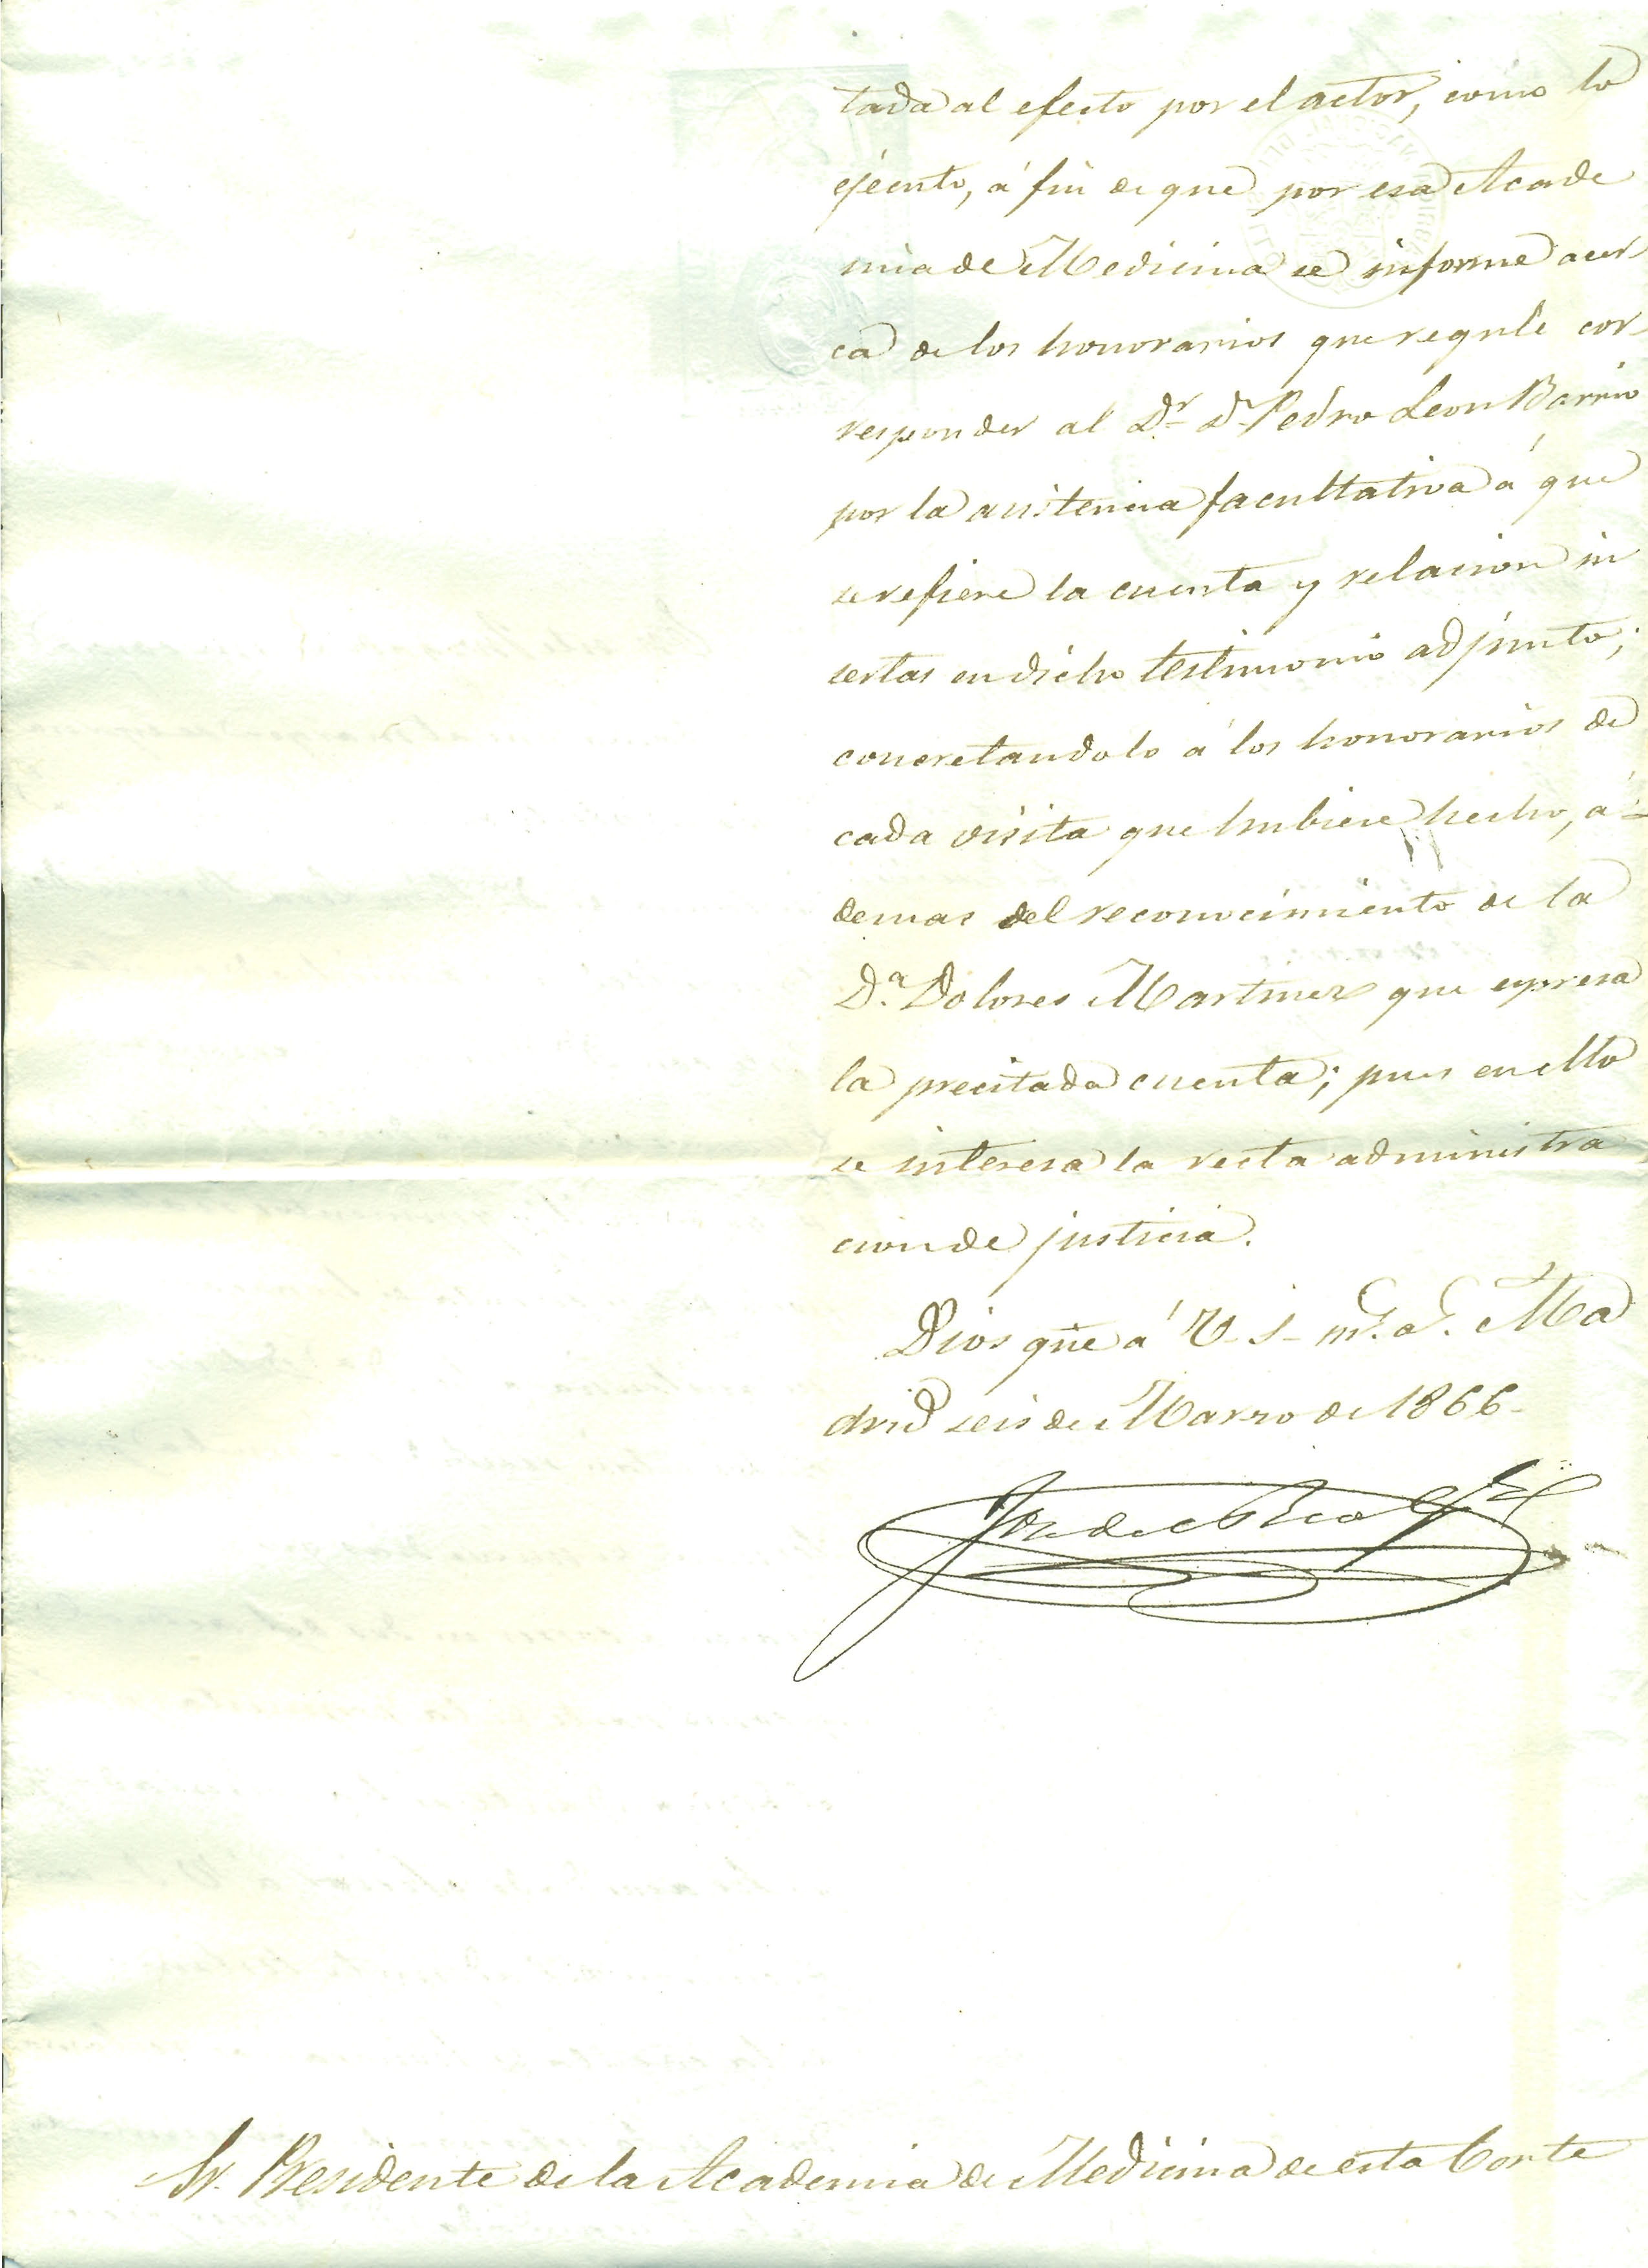 tada al efecto por el actor, como lo
ejecuto, á fin de que por esa Acade
mia de Medicina se informe acer
ca de los honorarios que regule cor
responder al Dr. Dn. Pedro Leon Barrio
por la asistencia facultativa á que
se refiere la cuenta y relacion in
sertas en dicho testimonio adjunto;
concretandolo á los honorarios de
cada visita que hubiere hecho, á-
demas del reconocimiento de la
D.a Dolores Martinez que espresa
la precitada cuenta; pues en ello
se interesa la recta administra
cion de justicia.
Dios gũe á V. S. m.s a.s Ma
drid seis de Marzo de 1866-
Sr. Presidente de la Academia de Medicina de esta Corte